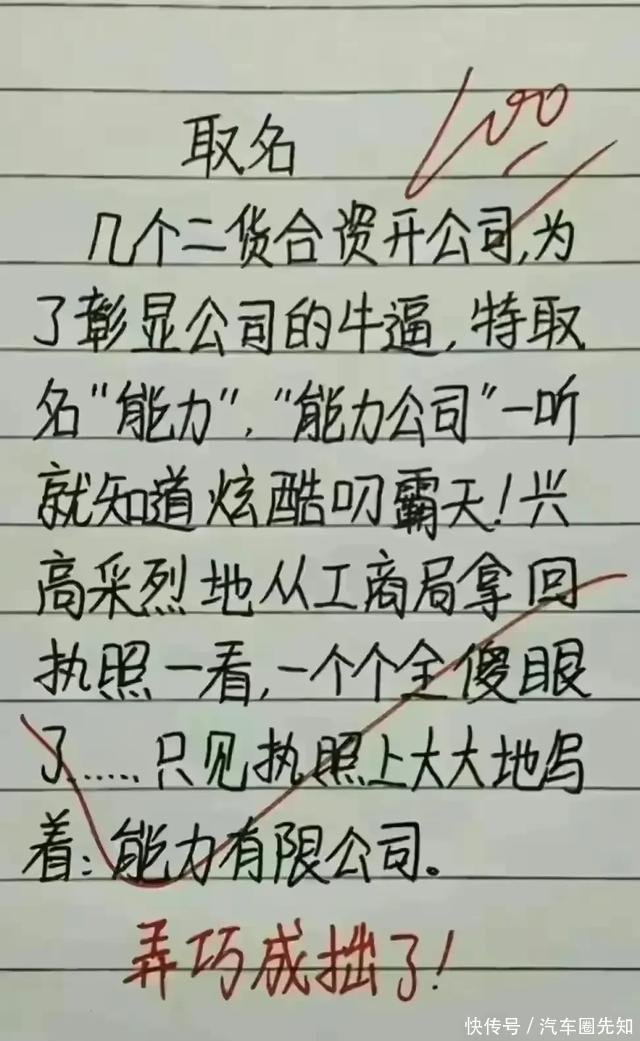 100
取名
几个二货合资开公司,为
了彰显公司的牛逼,特取
名“能力”,“能力公司”一听
就知道炫酷叨霸天!兴
高采烈地从工商局拿回
执照一看,一个个全傻眼
了......只见执照上大大地写
着:能力有限公司。
弄巧成拙了!
快传号/汽车圈先知